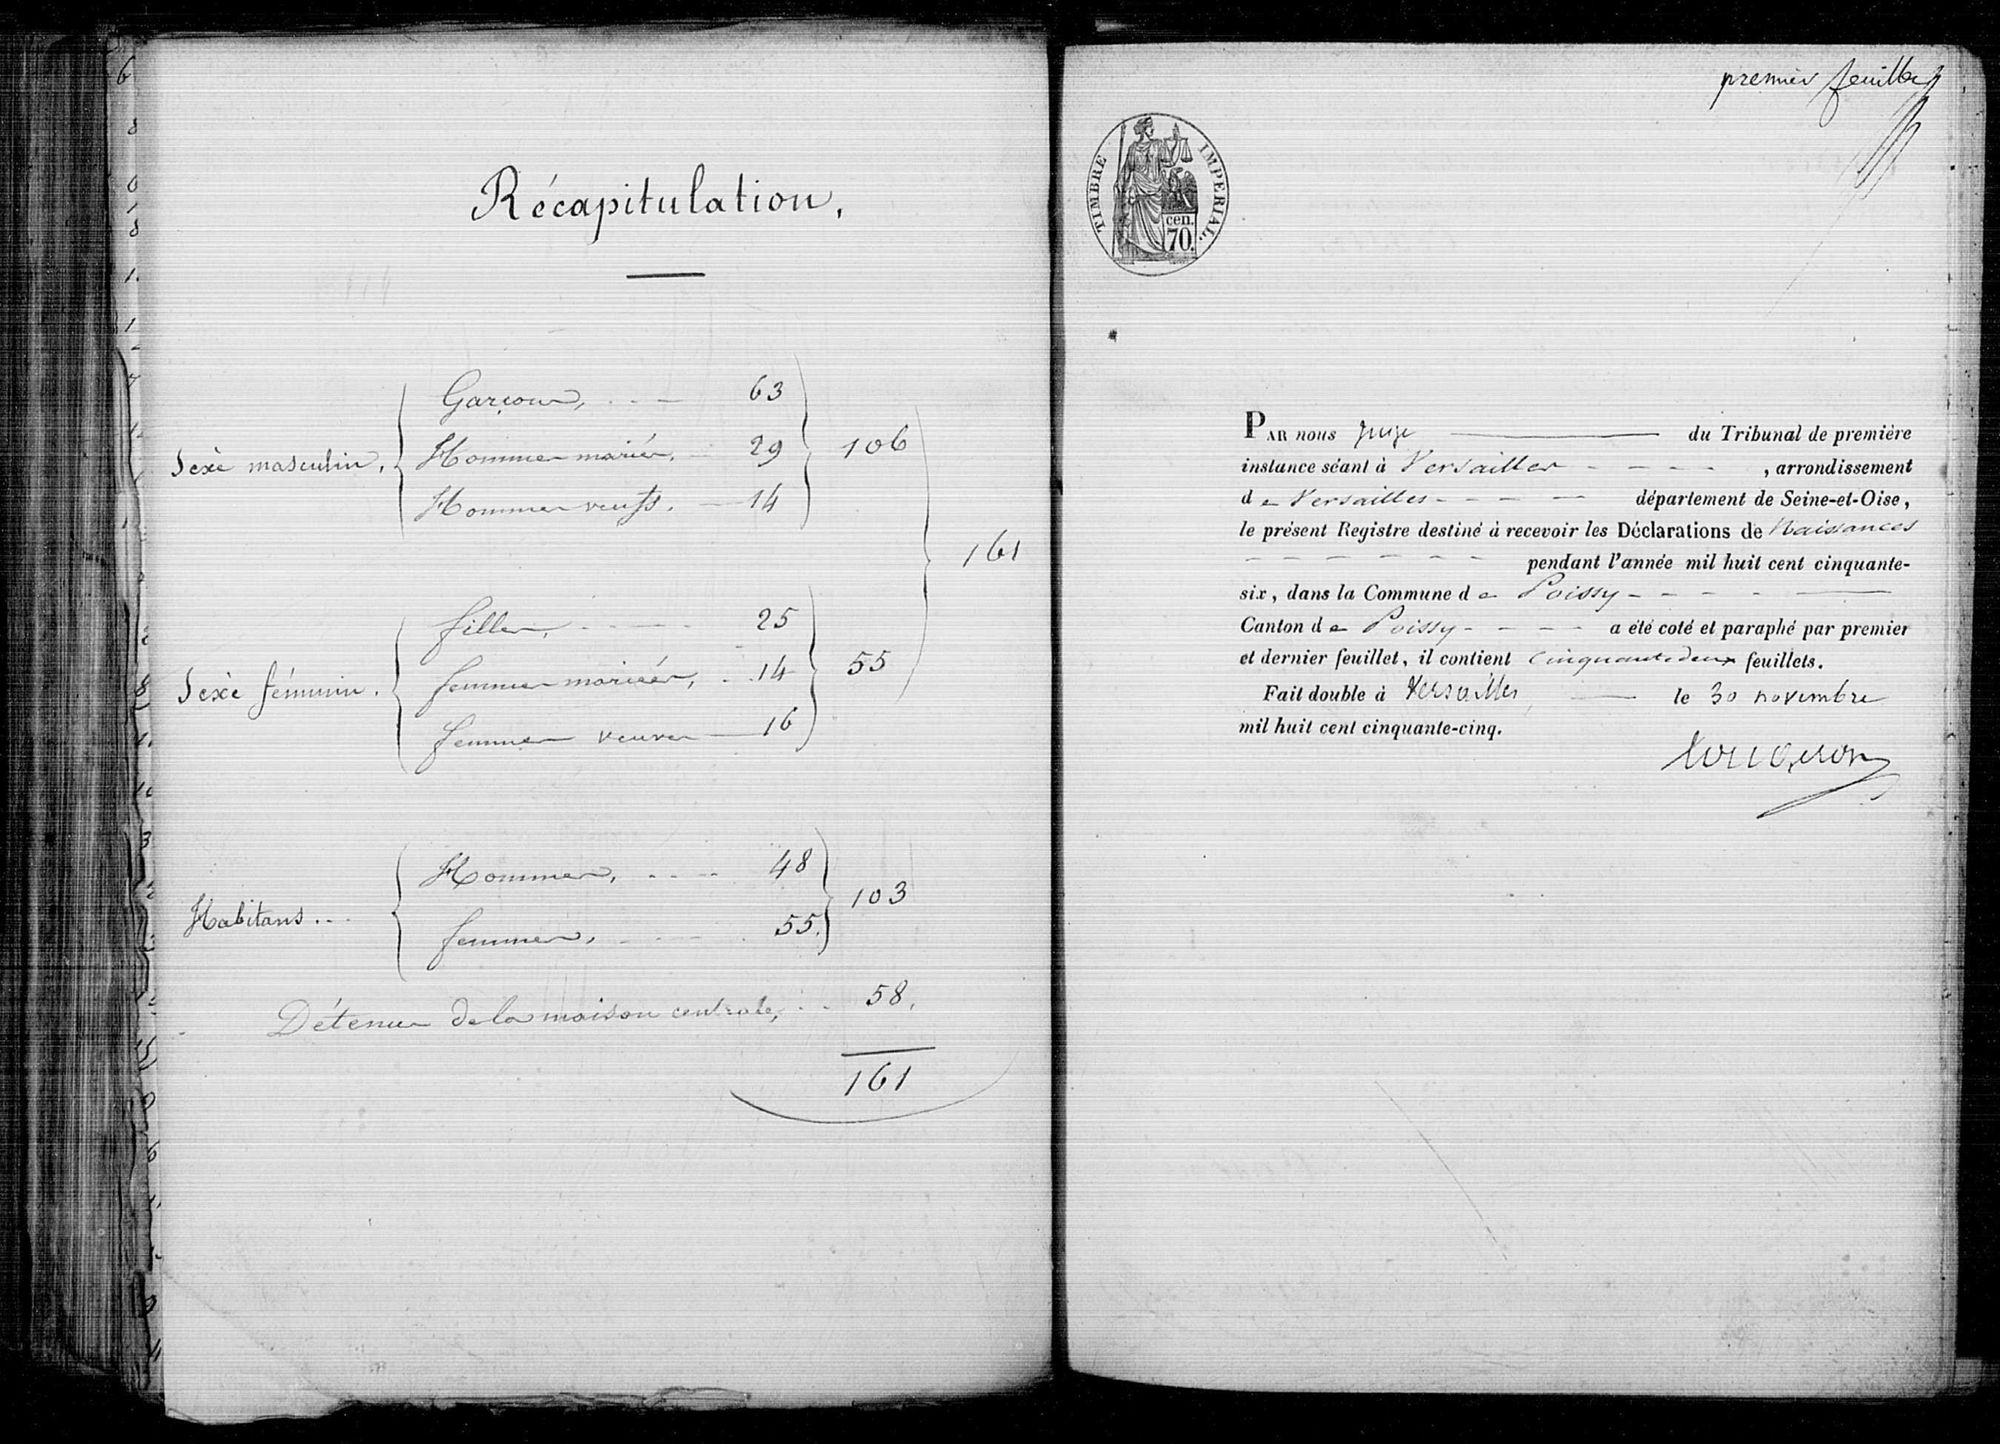 Récapitulation.
Garçons, 63
Sexe masculin. Hommes mariés, 29 106
Hommes veufs. 14
161
filles, 25
Sexe féminin. femmes mariées, 14 55
femmes veuves 16
Hommes, 48
Habitans 103
femmes, 55.
Détenus de la maison centrale, 58.
161
premier feuillet
TIMBRE IMPERIAL
cen.
70.
PAR nous Juge du Tribunal de première
instance séant à Versailles , arrondissement
de Versailles département de Seine-et-Oise,
le présent Registre destiné à recevoir les Déclarations de Naissances
pendant l'année mil huit cent cinquante-
six, dans la Commune de Poissy
Canton de Poissy a été coté et paraphé par premier
et dernier feuillet, il contient cinquante deux feuillets.
Fait double à Versailles le 30 novembre
mil huit cent cinquante-cinq.